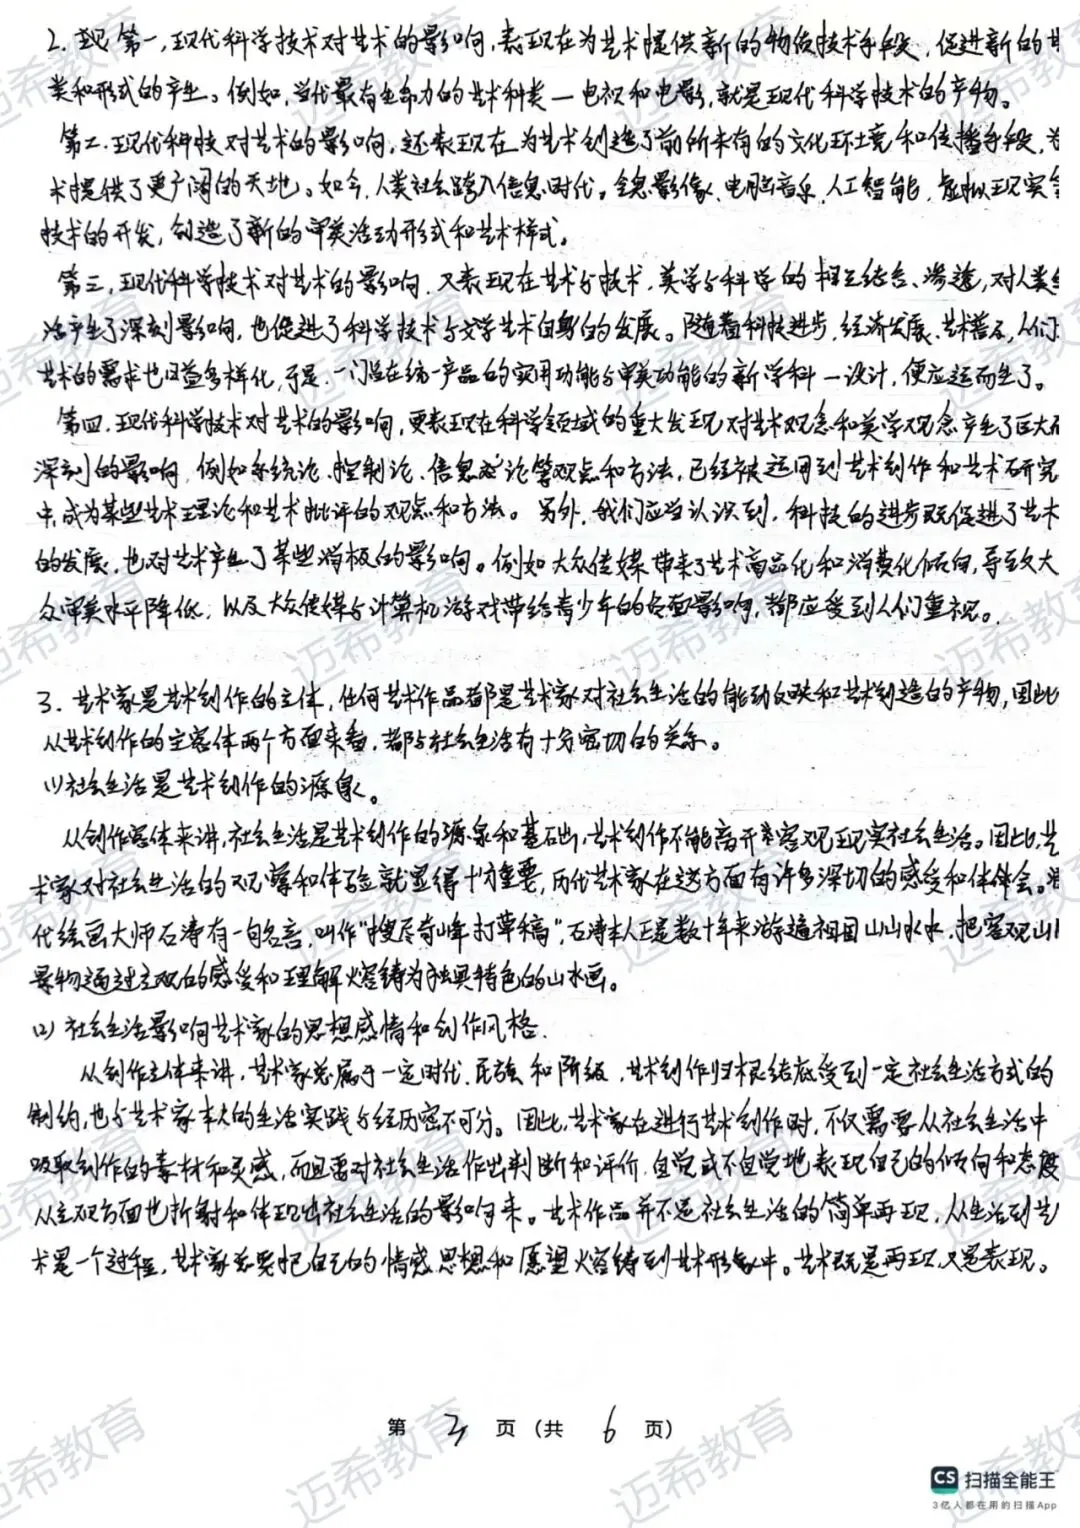 2. 第一,现代科学技术对艺术的影响,表现在为艺术提供新的物质技术手段,促进新的
类和形式的产生。例如,当代最有生命力的艺术种类—电视和电影,就是现代科学技术的产物。
第二.现代科技对艺术的影响,还表现在为艺术创造了前所未有的文化环境和传播手段,为
术提供了更广阔的天地。如今,人类社会踏入信息时代。全息影像、电脑音乐、人工智能、虚拟现实等
技术的开发,创造了新的审美活动形式和艺术样式。
第三,现代科学技术对艺术的影响,又表现在艺术与技术,美学与科学的相互结合、渗透,对人类生
活产生了深刻影响,也促进了科学技术与文学艺术自身的发展。随着科技进步,经济发展、艺术普及,人们
艺术的需求也日益多样化,于是,一门旨在统一产品的实用功能与审美功能的新学科—设计,便应运而生了。
第四.现代科学技术对艺术的影响,更表现在科学领域的重大发现对艺术观念和美学观念产生了巨大而
深刻的影响,例如系统论、控制论、信息论等观点和方法,已经被运用到艺术创作和艺术研究
中,成为某些艺术理论和艺术批评的观点和方法。另外,我们应当认识到,科技的进步既促进了艺术
的发展,也对艺术产生了某些消极的影响。例如大众传媒带来了艺术商品化和消费化倾向,导致大
众审美水平降低,以及大众传媒与计算机游戏带给青少年的负面影响,都应受到人们重视。
3. 艺术家是艺术创作的主体,任何艺术作品都是艺术家对社会生活的能动反映和艺术创造的产物,因此
从艺术创作的主客体两个方面来看,都与社会生活有十分密切的关系。
(1)社会生活是艺术创作的源泉。
从创作客体来讲,社会生活是艺术创作的源泉和基础,艺术创作不能离开客观现实社会生活。因此,艺
术家对社会生活的观察和体验就显得十分重要,历代艺术家在这方面有许多深切的感受和体会。清
代绘画大师石涛有一句名言,叫作"搜尽奇峰打草稿",石涛本人正是数十年来游遍祖国山山水水,把客观山川
景物通过主观的感受和理解熔铸为独具特色的山水画。
(2) 社会生活影响艺术家的思想感情和创作风格.
从创作主体来讲,艺术家总属于一定时代、民族和阶级,艺术创作归根结底受到一定社会生活方式的
制约,也与艺术家本人的生活实践与经历密不可分。因此,艺术家在进行艺术创作时,不仅需要从社会生活中
吸取创作的素材和灵感,而且要对社会生活作出判断和评价,自觉或不自觉地表现自己的倾向和态度
从主观方面也折射和体现出社会生活的影响来。艺术作品并不是社会生活的简单再现,从生活到艺
术是一个过程,艺术家总要把自己的情感、思想和愿望熔铸到艺术形象中。艺术既是再现,又是表现。
第 3 页 (共 6 页)
CS 扫描全能王
3亿人都在用的扫描App
迈希教育